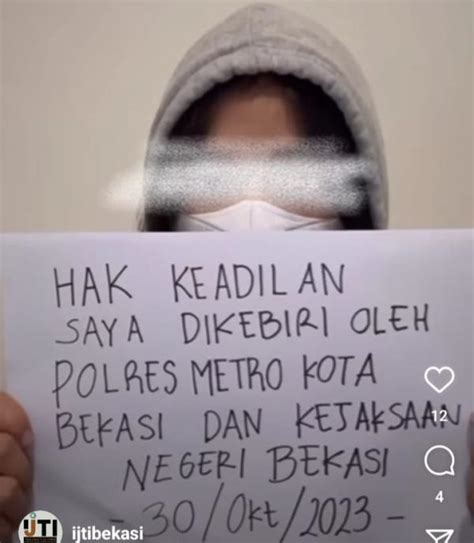 HAK KEADILAN
SAYA DIKEBIRI OLEH
POLRES METRO KOTA
BEKASI DAN KEJAKSAAN
NEGERI BEKASI
- 30/Okt/2023 -
12
4
IJTI
ijtibekasi